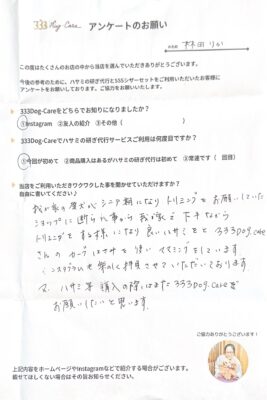 333 Dog-Care アンケートのお願い
お名前 林田
この度はたくさんのお店の中から当店を選んでいただきありがとうございます。
今後の参考のために、ハサミの研ぎ代行と333シザーセットをご利用いただいたお客様に
アンケートをお願いしております。ご協力をお願いいたします。
333Dog-Careをどちらでお知りになりましたか?
①Instagram ②友人の紹介 ③その他( )
333Dog-Careでハサミの研ぎ代行サービスご利用は何度目ですか?
①今回が初めて ②商品購入はあるがハサミの研ぎ代行は初めて ③常連です( 回目)
当店をご利用いただきワクワクした事を聞かせていただけますか?
自由に書いてください♪
我が家の愛犬がシニア期になりトリミングをお願いしていた
ショップに断られ事から我が家で下手ながら
トリミングをする様になり良いハサミをと333Dog.care
さんのカーブはさみを使いトリミングをしています
インスタグラムも楽しく拝見させていただいております
又、ハサミ等購入の際はまた333Dog.Careを
お願いしたいと思います。
ご協力ありがとうございます!
上記内容をホームページやInstagramなどで紹介する場合がございます。
載せてほしくない場合はその旨お知らせください。